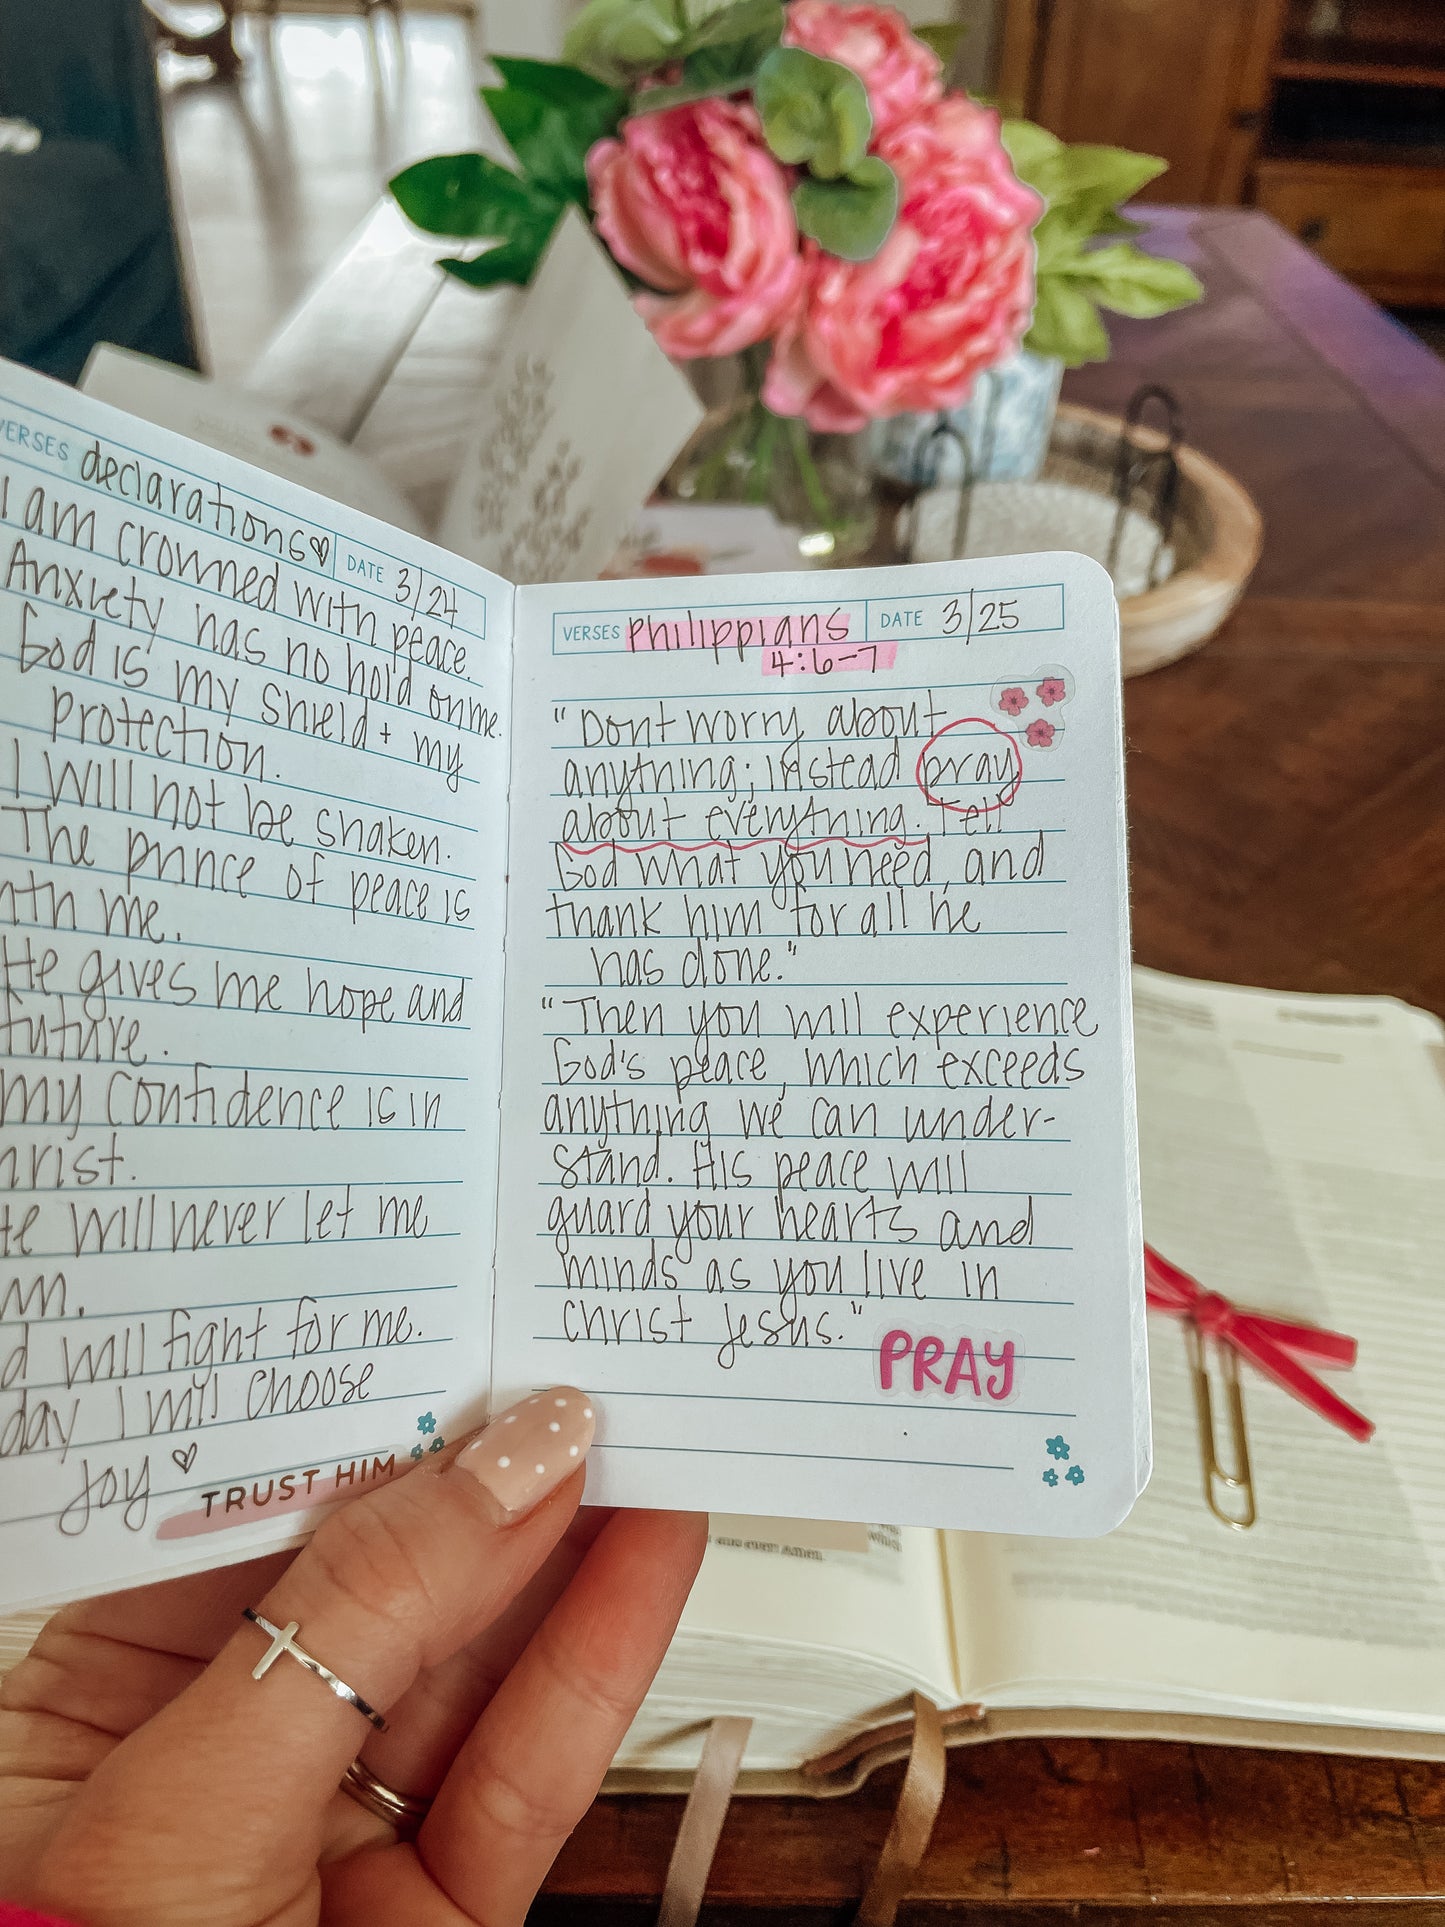 VERSES declarations DATE 3/24
I am crowned with peace.
Anxiety has no hold on me.
God is my shield + my
protection.
I will not be shaken.
The prince of peace is
with me.
He gives me hope and
future.
my confidence is in
hrist.
He will never let me
d will fight for me.
day I will choose
joy
TRUST HIM
VERSES Philippians DATE 3/25
4:6-7
"Dont worry about
anything; instead pray
about everything. Tell
God what you need, and
thank him for all he
has done."
"Then you will experience
God's peace, which exceeds
anything we can under-
stand. His peace will
guard your hearts and
minds as you live in
Christ Jesus."
PRAY
and ever! Amen.
which